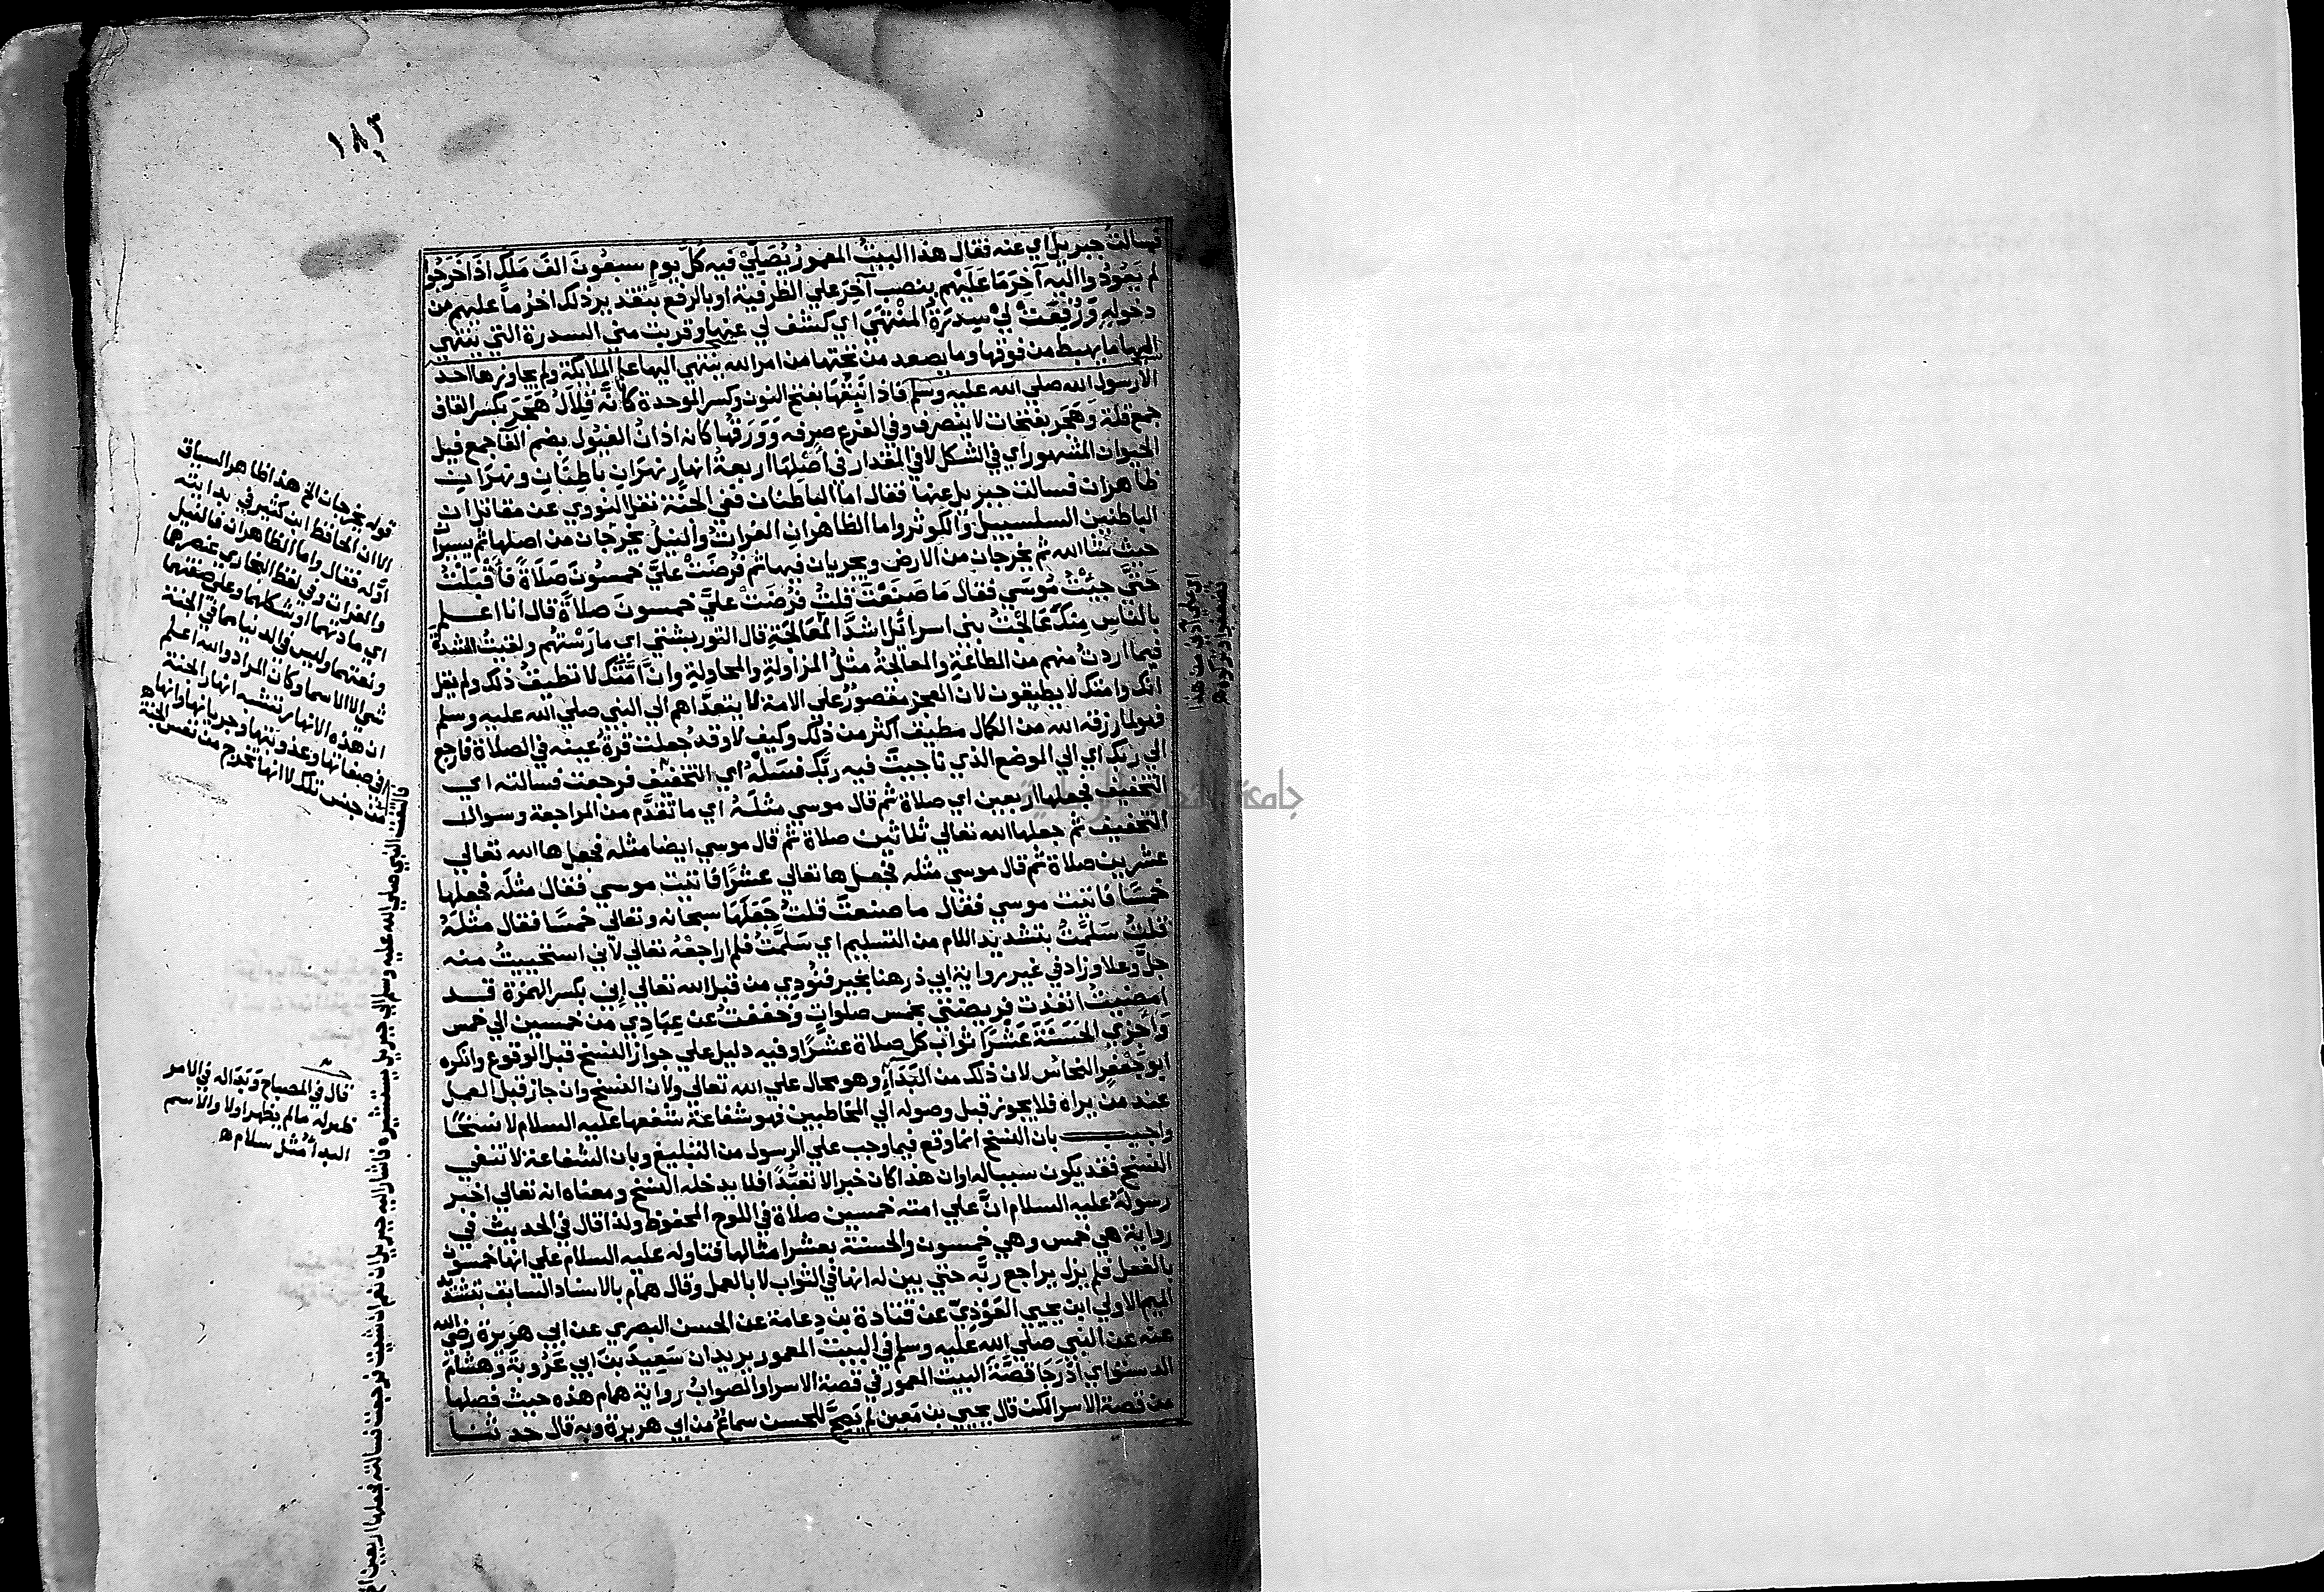 ١٨٢
فسالت جبريل اي عنه فقال هذا البيتُ المعمورُ يُصَلِّيْ فيه كلَّ يومٍ سبعُونَ الفَ مَلَكٍ اذَا خَرَجُوا
لم يَعُودُوا اليه آخِرَ مَا عَلَيْهم بنصب آخِرَ علي الظرفية او بالرفع بتقدير ذلك اخرُ ما عليهم من
دخولهِ وَرُفِعَتْ لِيْ سِدْرَةُ المُنْتَهَيَ اي كشف لي عنها وقربت مني السدرة التي ينتهي
اليها ما يهبط من فوقها وما يصعد من تحتها من امر الله ينتهي اليها علم الملايكة ولم يجاوزها احد
الا رسول الله صلي الله عليه وسلم فاذا نَبِقُها بفتح النون وكسر الموحدة كأنَّه قِلَالُ هَجَرَ بكسر القاف
جمع قلة وَهَجَر بفتحات لا ينصرف وفي الفرع صرفه وَوَرَقُها كانه اذانُ الفيُول بضم الفا جمع فيل
الحيوان المشهور اي في الشكل لا في المقدار في اَصْلِهَا اربعةُ انهارٍ نهرَانِ باطِنَانِ ونهرَانِ
ظاهران فسالت جبريل عنها فقال اما الباطنان ففي الجنَّة نقل النووي عن مقاتل ان
الباطنين السلسبيل والكوثر واما الظاهرانِ الفراتُ والنيلُ يخرجان من اصلها ثم يسيران
حيث شا الله ثم يخرجان من الارض ويجريان فيها ثم فُرِضَتْ عليَّ خمسُونَ صَلَاةً فأقْبَلْتُ
حَتَّي جِيْتُ مُوسَي فقال مَا صَنَعْتَ قلتُ فُرِضَتْ عليَّ خمسونَ صلاةً قال انا اعلم
بالنَّاسِ مِنكَ عَالَجْتُ بني اسرائيل اشدَّ المُعَالَجَةِ قال التوربشتي اي مارَسْتهُم ولقيتُ الشدة
فيما اردتُ منهم من الطاعةِ والمعالجةُ مثلُ المزاولةِ والمحاولةِ وانَّ اُمَّتَكَ لا تطيقُ ذلك ولم يقل
انك وامتك لا يطيقون لان العجز مقصورٌ علي الامة لا يتعدَّاهم الي النبي صلي الله عليه وسلم
فهو لما رزقه الله من الكمال مطيق اكثر من ذلك وكيف لا وقد جُعلت قرةُ عينه في الصلاة فارجع
الي ربك اي الي الموضع الذي ناجيتَ فيه ربَّك فسَلْهُ اي التخفيف فرجعت فسالته اي
التخفيف فجعلها اربعين اي صلاة ثم قال موسي مثلَهُ اي ما تقدَّم من المراجعة وسوال
التخفيف ثم جعلها الله تعالي ثلاثين صلاة ثم قال موسي ايضا مثله فجعلها الله تعالي
عشرين صلاة ثم قال موسي مثله فجعلها تعالي عشرًا فاتيت موسي فقال مثلَه فجعلها
خمسًا فاتيت موسي فقال ما صنعتَ قلتُ جَعَلَهَا سبحانه وتعالي خمسًا فقال مثلَهُ
قلتُ سَلَّمْتُ بتشديد اللام من التسليم اي سَلَّمْتُ فلم اراجعْهُ تعالي لأني استحييتُ منه
جلَّ وعلا وزاد في غير رواية ابي ذر هنا بخير فنُودي من قبل الله تعالي إني بكسر الهمزة قد
امضيتُ انفذت فريضتي بخمس صلواتٍ وخففتُ عن عِبَادِي من خمسين الي خمس
وَأَجْزي الحَسَنَةَ عَشْرًا ثواب كل صلاة عشرًا وفيه دليل علي جواز النسخ قبل الوقوع وانكره
ابو جَعْفرٍ النحاسُ لان ذلك من البَدَاءِ وهو محال علي الله تعالي ولان النسخ وان جاز قبل العمل
عند من يراه فلا يجوز قبل وصوله الي المخاطبين فهو شفاعة شفعها عليه السلام لا نسخا
واجيب بان النسخ انما وقع فيما وجب علي الرسول من التبليغ وبان الشفاعة لا تنفي
النسخ فقد يكون سببا له او ان هذا كان خبرا لا تعبُّدًا فلا يدخله النسخ ومعناه انه تعالي اخبر
رسولَهُ عليه السلام انَّ علي امته خمسين صلاة في اللوح المحفوظ ولذا قال في الحديث في
رواية هي خمس وهي خمسون والحسنة بعشر امثالها فتاوله عليه السلام علي انها خمسون
بالفعل فلم يزل يراجع ربَّه حتي بين له انها في الثواب لا بالعمل وقال همام بالاسناد السابق بتشديد
الميم الاولي ابن يحيي العَوْذِيّ عن قتادة بن دِعامة عن الحسن البصري عن ابي هريرة رضي الله
عنه عن النبي صلي الله عليه وسلم في البيت المعمور يريد ان سَعِيدَ بنَ ابي عَرُوبة وهشام
الدستوايَ اَدْرَجَا قصَّةَ البيت المعمور في قصة الاسرا والصوابُ رواية همام هذه حيث فصلها
من قصة الاسرا لكن قال يحيي بن مَعين لم يَصِحَّ للحسن سماعٌ من ابي هريرة وبه قال حدثنا
قوله يخرجان الخ هذا ظاهر السياق
الا ان الحافظ ابن كثير في بدايته
اوَّله فقال واما الظاهران فالنيل
والفرات وفي لفظ البخاري عنصرهما
اي مادتهما او شكلهما وعلي صفتهما
ونعتهما وليس في الدنيا مما في الجنة
شي الا الاسما وكان المراد والله اعلم
ان هذه الانهار تشبه انهار الجنة
في صفائها وعذوبتها وجريانها وانها
من جنس تلك لا انها تخرج من نفس الجنة
فالتفت النبي صلي الله عليه وسلم الي جبريل يستشيره فاشار اليه جبريل ان نعم ان شيت فرجعت فسالته فجعلها اربعين الخ
قال في المصباح وبَدَا له في الامر
ظهر له ما لم يظهر اولا والاسم
البداءُ مثل سلام ه
اي علي ادني من هذا
فضعفوا وتركوه ه